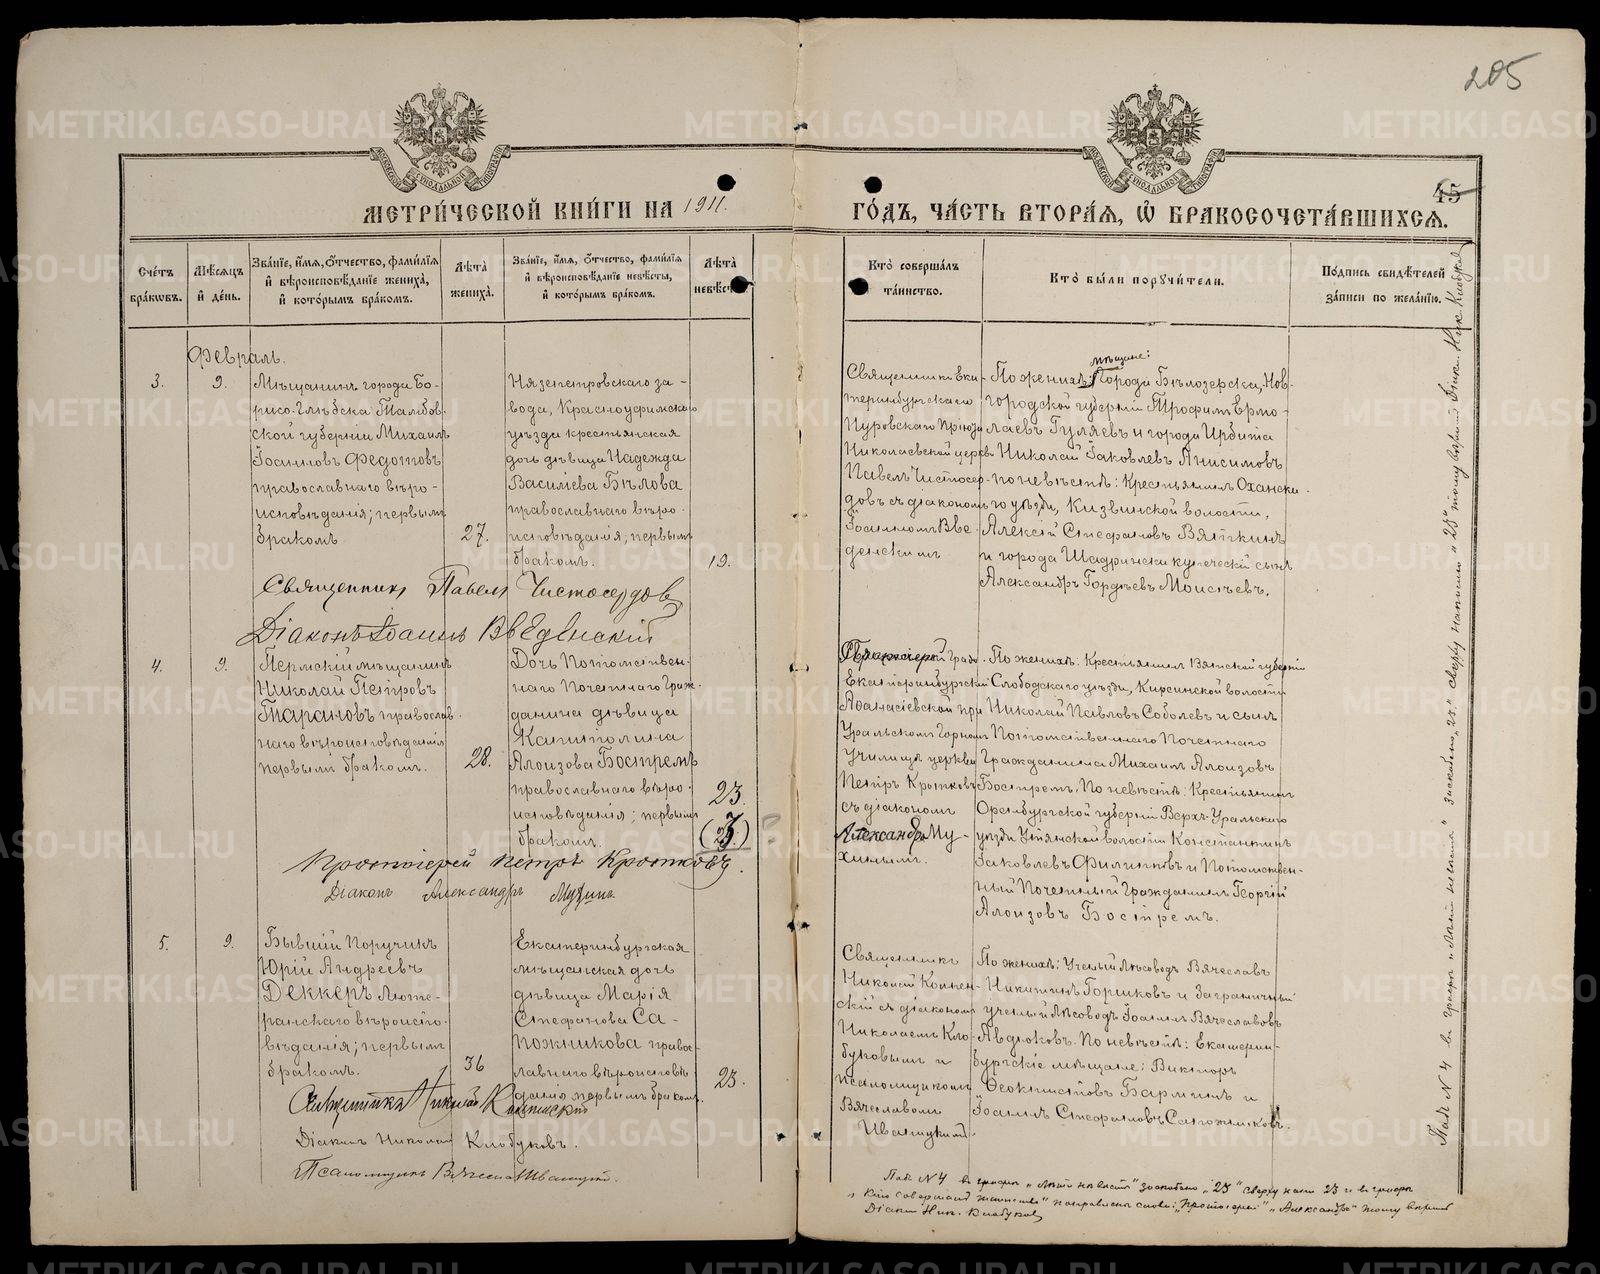 205
45
МОСКОВСКОЙ СУНОДАЛЬНОЙ ТИПОГРАФІИ
МОСКОВСКОЙ СУНОДАЛЬНОЙ ТИПОГРАФІИ
МЕТРИ́ЧЕСКОЙ КНИ́ГИ НА 1911.
ГО́ДЪ, ЧА́СТЬ ВТОРА́Ѧ, Ѽ БРАКОСОЧЕТА́ВШИХСѦ.
Сче́тъ бра́кѡвъ.
Мѣ́сѧцъ и҆ де́нь.
Зва́нїе, и҆́мѧ, ѻ҆́тчество, фамѝлїѧ и҆ вѣроисповѣ́данїе жениха̀, и҆ кото́рымъ бра́комъ.
Лѣта̀ жениха̀.
Зва́нїе, и҆́мѧ, ѻ҆́тчество, фамѝлїѧ и҆ вѣроисповѣ́данїе невѣ́сты, и҆ кото́рымъ бра́комъ.
Лѣта̀ невѣ́ст
Кто̀ соверша́лъ та́инство.
Кто̀ бы́ли порꙋчи́тели.
По́дпись свидѣ́телей за́писи по жела́нїю.
Февраль.
3.
9.
Мѣщанинъ города Бо-
рисо-Глѣбска Тамбов-
ской губерніи Михаилъ
Іоанновъ Федотовъ
православнаго вѣро-
исповѣданія; первымъ
бракомъ.
27.
Нязепетровскаго за-
вода, Красноуфимскаго
уѣзда крестьянская
дочь дѣвица Надежда
Василіева Бѣлова
православнаго вѣро-
исповѣданія; первымъ
бракомъ.
19.
Священникъ Ека-
теринбургскаго
Нуровскаго Пріюта
Николаевской церкви
Павелъ Чистосер-
довъ съ діакономъ
Іоанномъ Вве-
денскимъ
мѣщане:
По женихѣ: Города Бѣлозерска, Нов-
городской губерніи Трофимъ Ермо-
лаевъ Гуляевъ и города Ирбита
Николай Іаковлевъ Анисимовъ
по невѣстѣ: Крестьянинъ Оханска-
го уѣзда, Кизвинской волости,
Алексій Стефановъ Вяткинъ
и города Шадринска купеческій сынъ
Александръ Гордѣевъ Моисѣевъ.
Священникъ Павелъ Чистосердовъ
Діаконъ Іоаннъ Введенскій
4.
9.
Пермскій мѣщанинъ
Николай Петровъ
Тарановъ православ-
наго вѣроисповѣданія
первымъ бракомъ.
28.
Дочь Потомствен-
наго Почетнаго Граж-
данина дѣвица
Капитолина
Алоизова Бостремъ
православнаго вѣро-
исповѣданія; первымъ
бракомъ.
23.
Протоіерей Града
Екатеринбургской
Аѳанасіевской при
Уральскомъ Горномъ
Училищѣ церкви
Петръ Кротковъ
съ діакономъ
Александромъ Му-
хинымъ.
По женихѣ: Крестьянинъ Вятской губерніи
Слободскаго уѣзда, Кирсинской волости
Николай Павловъ Соболевъ и сынъ
Потомственнаго Почетнаго
Гражданина Михаилъ Алоизовъ
Бостремъ. По невѣстѣ: Крестьянинъ
Оренбургской губерніи Верхъ-Уральскаго
уѣзда Уйянской волости Константинъ
Іаковлевъ Филипповъ и Потомствен-
ный Почетный Гражданинъ Георгій
Алоизовъ Бостремъ.
Протоіерей Петръ Кротковъ.
Діаконъ Александръ Мухинъ
5.
9.
Бывшій Поручикъ
Юрій Андреевъ
Деккеръ Люте-
ранскаго вѣроиспо-
вѣданія; первымъ
бракомъ.
36
Екатеринбургская
мѣщанская дочь
дѣвица Марія
Стефанова Са-
пожникова право-
славнаго вѣроисповѣ-
данія первымъ бракомъ.
23.
Священникъ
Николай Коннен-
скій съ діакономъ
Николаемъ Кло-
буковымъ и
псаломщикомъ
Вячеславомъ
Ивацукимъ.
По женихѣ: Ученый Лѣсоводъ Вячеславъ
Никитинъ Горшковъ и Заграничный
ученый Лѣсоводъ Іоаннъ Вячеславовъ
Авдюковъ. По невѣстѣ: Екатерин-
бургскіе мѣщане: Викторъ
Ѳеоктистовъ Барминъ и
Іоаннъ Стефановъ Сапожниковъ.
Священникъ Николай
Діаконъ Николай Клобуковъ.
Псаломщикъ Вячеславъ
Под № 4 въ графѣ „лѣта невѣсты" заскоблено „25" сверху напис 23 и въ графѣ
„Кто совершалъ таинство" поправлены слова: „Протоіерей" „Александръ" тому вѣрить
Діаконъ Ник. Клобуковъ
Подъ № 4 въ графѣ „лѣта невѣсты" заскоблено „25" сверху написано „23" тому вѣрить Діак. Ник. Клобуковъ
METRIKI.GASO-URAL.RU